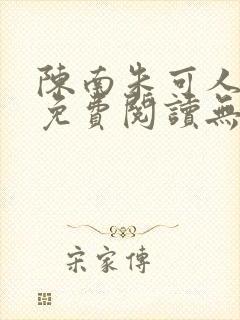 陳南朱可人
免費閱讀無
宋家傳